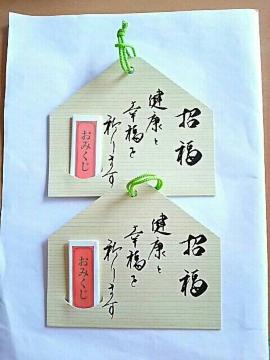 招福
健康と
幸福を
祈ります
おみくじ
招福
健康と
幸福を
祈ります
おみくじ